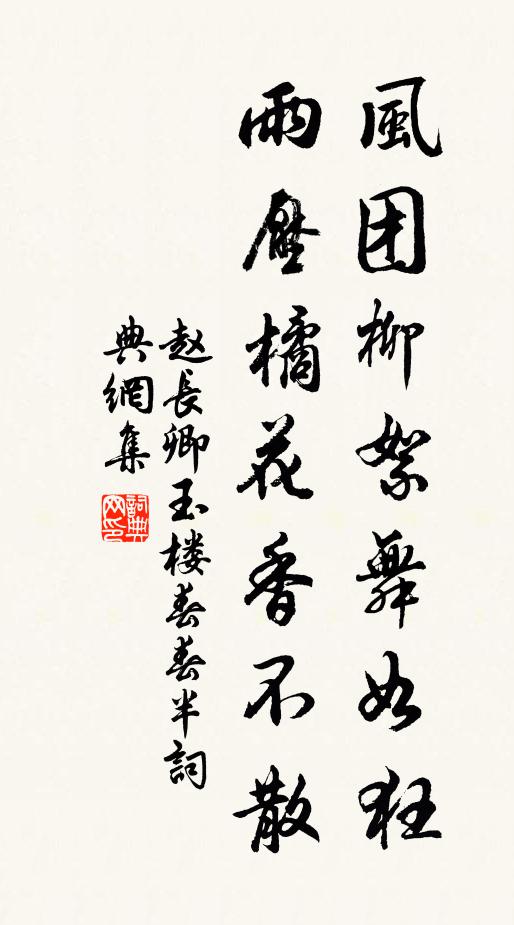 風团柳絮舞如狂
雨壓橘花香不散
赵長卿玉楼春春半詞
典網集
詞典网印